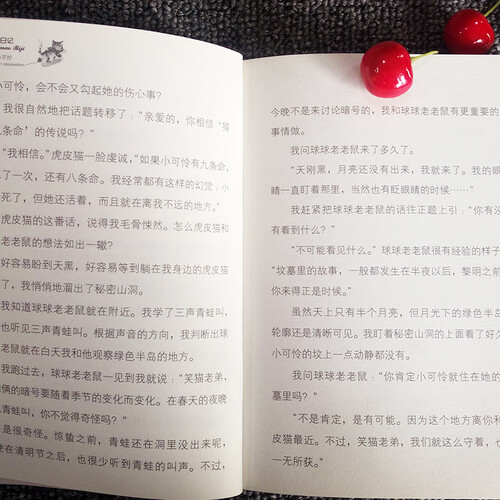 日记
可怜
小可怜，会不会又勾起她的伤心事？
我很自然地把话题转移了：“亲爱的，你相信‘猫
九条命’的传说吗？”
“我相信。”虎皮猫一脸虔诚，“如果小可怜有九条命，
了一次，还有八条命。我经常都有这样的幻觉：小
死了，但她还活着，而且就在离我不远的地方。”
虎皮猫的这番话，说得我毛骨悚然。怎么虎皮猫和
老老鼠的想法如出一辙？
好容易盼到天黑，好容易等到躺在我身边的虎皮猫
了，我悄悄地溜出了秘密山洞。
我知道球球老老鼠就在附近。我学了三声青蛙叫，
也听见三声青蛙叫。根据声音的方向，我判断出球
老鼠就在白天我和他观察绿色半岛的地方。
我跑过去，球球老老鼠一见到我就说：“笑猫老弟，
俩的暗号要随着季节的变化而变化。在春天的夜晚
青蛙叫，你不觉得奇怪吗？”
是很奇怪。惊蛰之前，青蛙还在洞里没出来呢，
使在清明节之后，也很少听到青蛙的叫声。不过，
今晚不是来讨论暗号的，我和球球老老鼠有更重要的
事情做。
我问球球老老鼠来了多久了。
“天刚黑，月亮还没有出来，我就来了。我的眼
睛一直盯着那里，当然也有眨眼睛的时候……”
我赶紧把球球老老鼠的话往正题上引：“你有没
有看到什么？”
“不可能看见什么。”球球老老鼠很有经验的样子
“坟墓里的故事，一般都发生在半夜以后，黎明之前
你来得正是时候。”
虽然天上只有半个月亮，但月光下的绿色半岛
轮廓还是清晰可见。我盯着秘密山洞的上面看了好久
小可怜的坟上一点动静都没有。
我问球球老老鼠：“你肯定小可怜就住在她的
墓里吗？”
“不是肯定，是有可能。因为这个地方离你和
皮猫最近。不过，笑猫老弟，我们就这么守着，也
一无所获。”